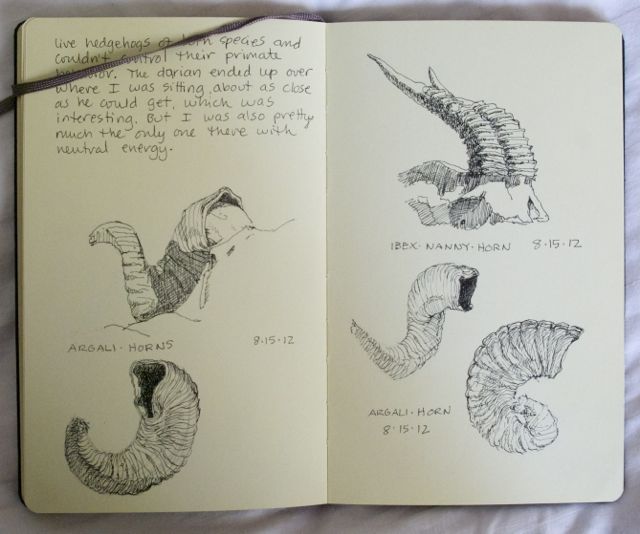 live hedgehogs of both species and
couldn't control their primate
behavior. The darian ended up over
where I was sitting about as close
as he could get, which was
interesting. But I was also pretty
much the only one there with
neutral energy.
ARGALI·HORNS 8·15·12
IBEX·NANNY·HORN 8·15·12
ARGALI·HORN
8·15·12